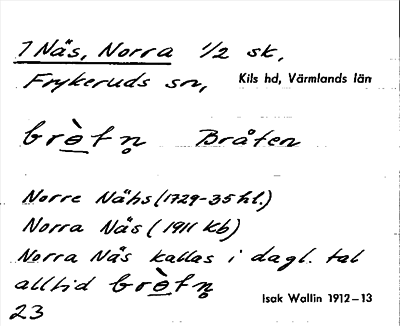 7 Näs, Norra 1/2 sk,
Frykeruds sn, Kils hd, Värmlands län
brə̀tn̥ Bråten
Norre Nähs (1729-35 hl.)
Norra Näs (1911 Kb)
Norra Näs kallas i dagl. tal
alltid brə̀tn̥
Isak Wallin 1912–13
23